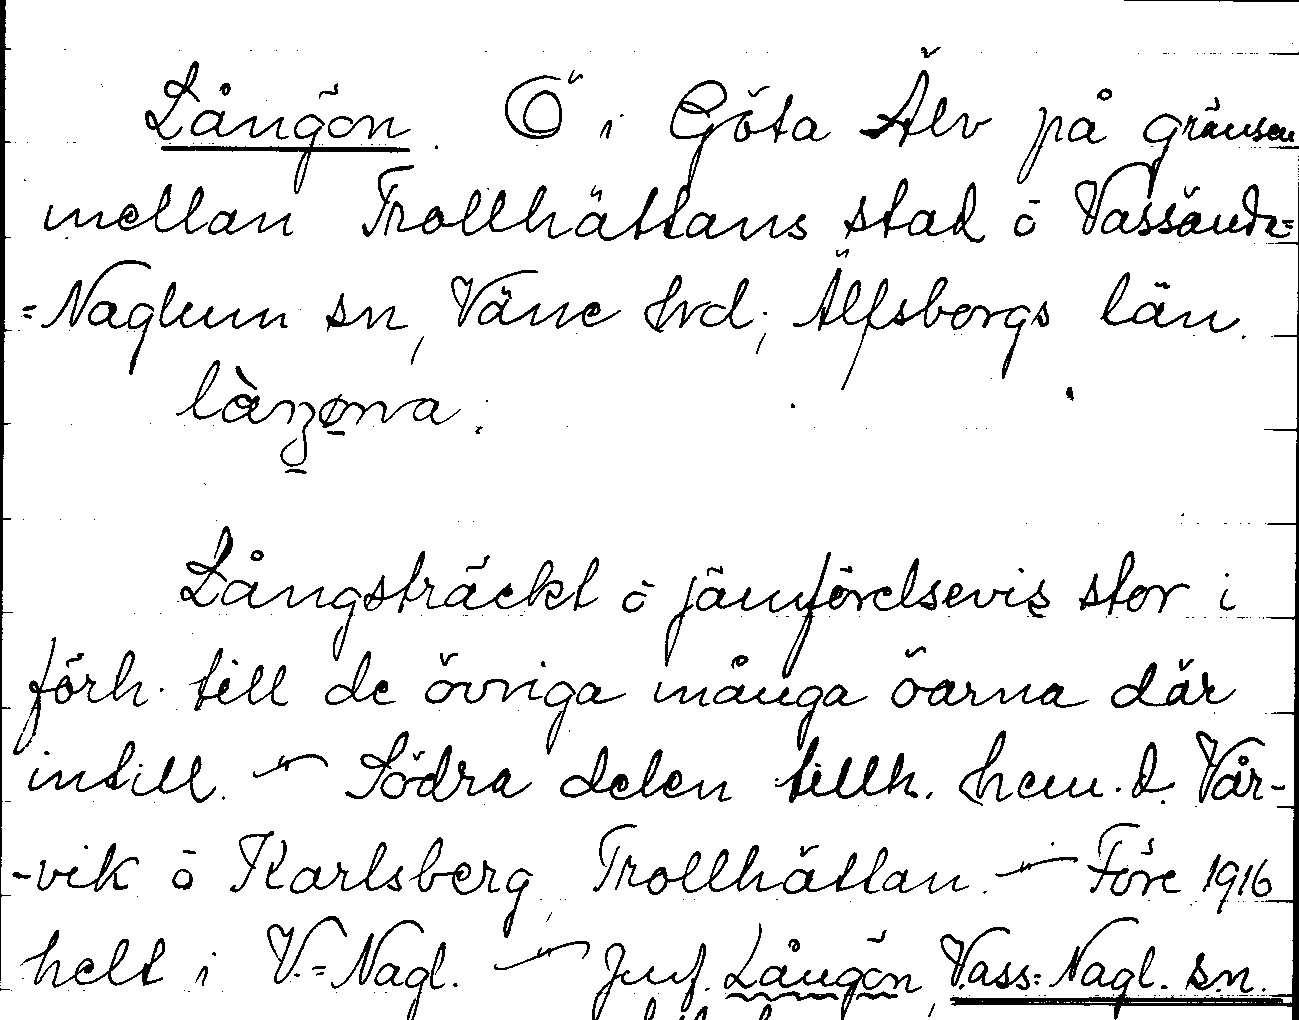 Långön. Ö i Göta Älv på gränsen
mellan Trollhättans stad o Vassända=
=Naglum sn, Väne hrd, Älfsborgs län.
Långsträckt o jämförelsevis stor i
förh. till de övriga många öarna där
intill. — Södra delen tillh. hem. d. Vår-
-vik o Karlsberg, Trollhättan. — Före 1916
helt i V.=Nagl. — Jmf. Långön, Vass.=Nagl. sn.